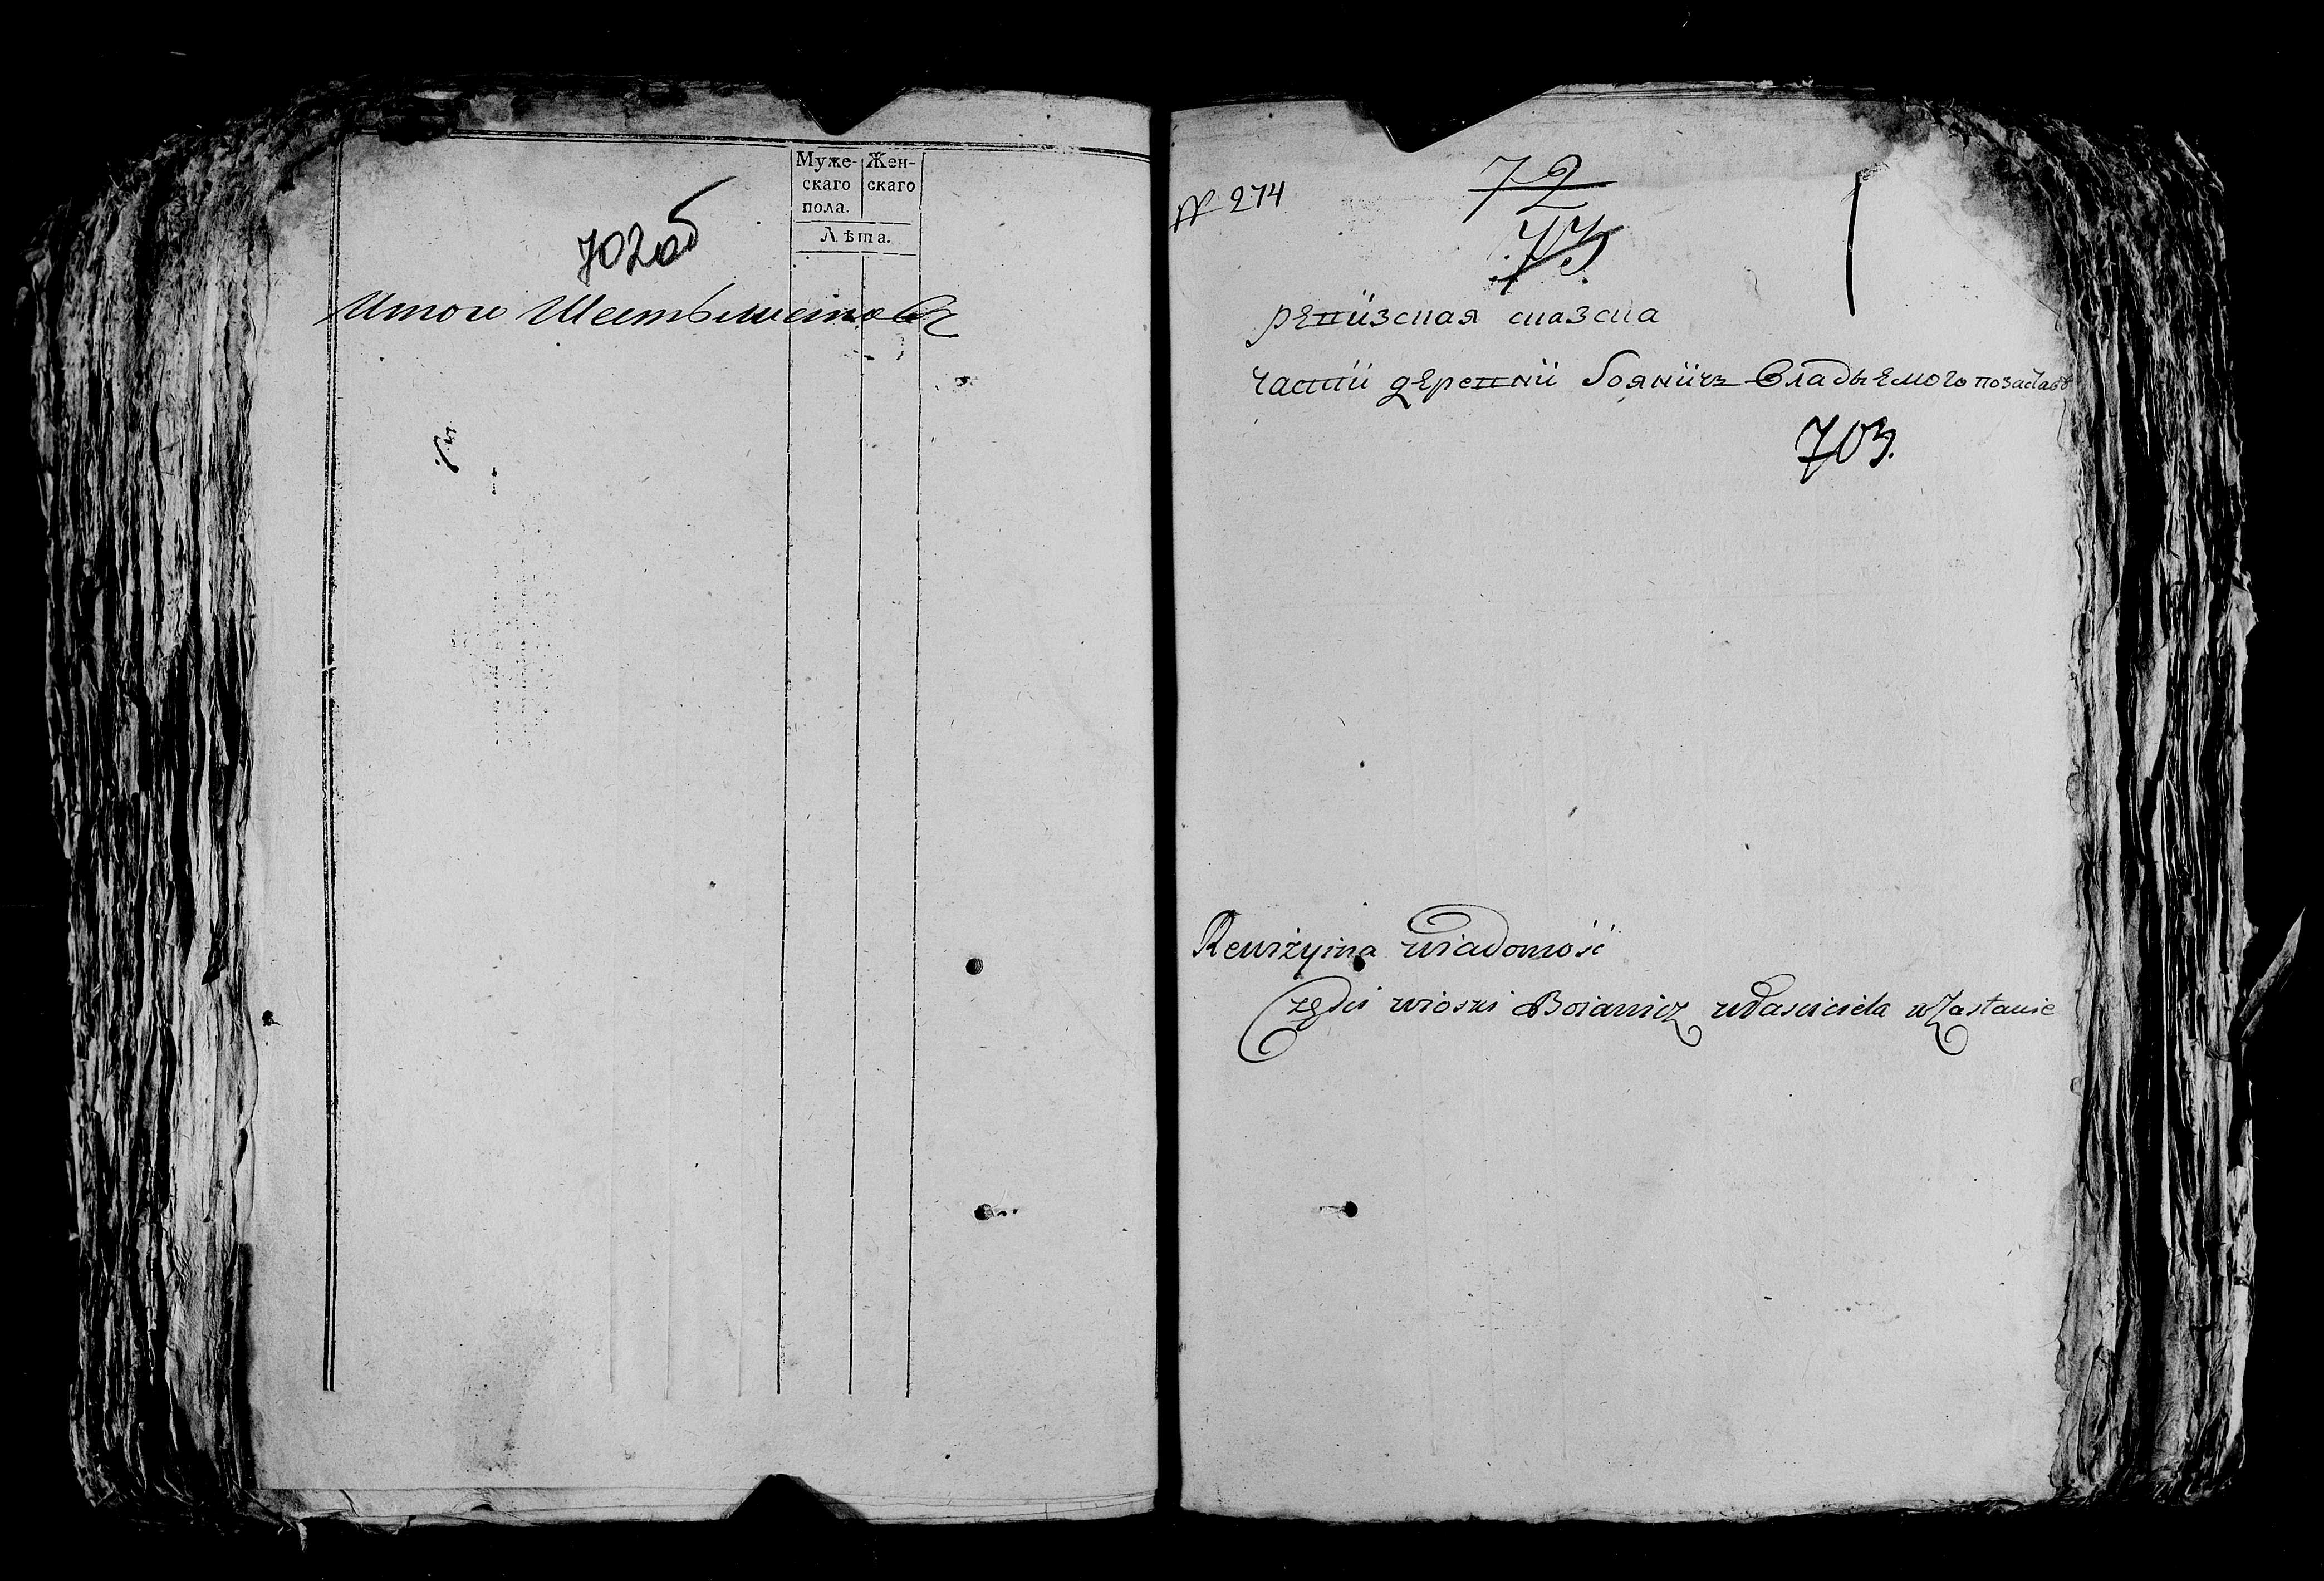 Муже-
скаго
пола.
Жен-
скаго
Лѣта.
702об
Итого Шесть листовъ
№ 274
72
73
ревизская сказка
части деревни Бояничъ Владѣемого по заставѣ
703.
Rewizyina wiadomość
części wioski Boianicz właściciela w Zastawie